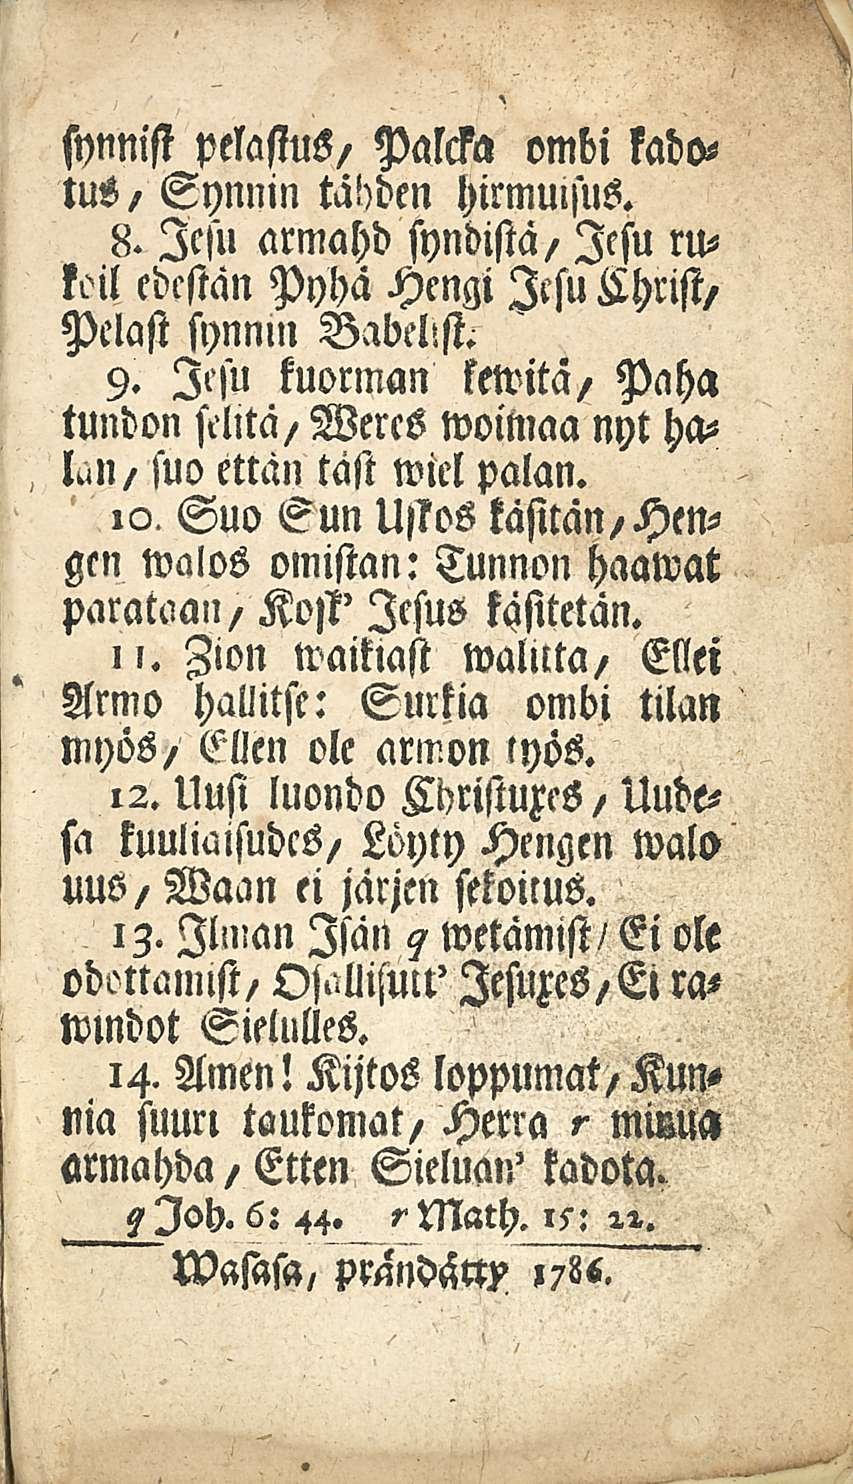 synnist pelastus, Palcka ombi kado-
tus, Synnin tähden hirmuisus.
8. Jesu armahd syndistä, Jesu ru-
koil edestän Pyhä Hengi Jesu Christ,
Pelast synnin Babelist.
9. Jesu kuorman kewitä, Paha
tundon selitä, Weres woimaa nyt ha-
lan, suo ettän täst wiel palan.
10. Suo Sun Uskos käsitän, Hen-
gen walos omistan: Tunnon haawat
parataan, Kosk' Jesus käsitetän.
11. Zion waikiast walitta, Ellei
Armo hallitse: Surkia ombi tilan
myös, Ellen ole armon työs.
12. Uusi luondo Christuxes, Uude-
sa kuuliaisudes, Löyty Hengen walo
uus, Waan ei järjen sekoitus.
13. Ilman Isän q wetämist, Ei ole
odottamist, Osallisutt' Jesuxes, Ei ra-
windot Sielulles.
14. Amen! Kijtos loppumat, Kun-
nia suuri taukomat, Herra r minua
armahda, Etten Sieluan' kadota.
q Joh. 6: 44. r Math. 15: 22.
Wasasa, prändätty 1786.